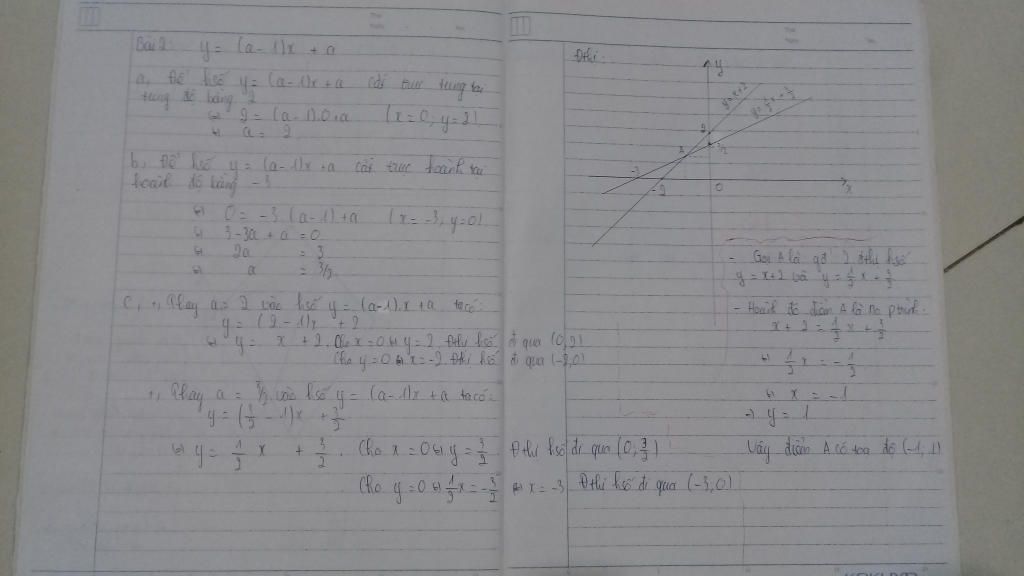 Bài 2: y = (a-1)x + a
a, Để hsố y = (a-1)x + a cắt trục tung tại
tung độ bằng 2
⇔ 2 = (a-1).0+a (x=0; y=2)
⇔ a = 2
b, Để hsố y = (a-1)x + a cắt trục hoành tại
hoành độ bằng -3
⇔ 0 = -3.(a-1)+a (x=-3, y=0)
⇔ 3-3a + a = 0
⇔ 2a = 3
⇔ a = 3/2
c, +, Thay a = 2 vào hsố y = (a-1).x+a ta có:
y = (2-1)x + 2
⇔ y = x + 2. Cho x = 0 ⇔ y = 2 Đthị hsố đi qua (0,2)
Cho y = 0 ⇔ x = -2 Đthị hsố đi qua (-2,0)
+, Thay a = 3/2 vào hsố y = (a-1)x+a ta có:
⇔ y = 1/2 x + 3/2. Cho x = 0 ⇔ y = 3/2 Đthị hsố đi qua (0; 3/2)
Cho y = 0 ⇔ 1/2 x = -3/2 ⇔ x = -3 Đthị hsố đi qua (-3,0)
Đthị:
y
y = x+2
y = 1/2 x + 3/2
2
3/2
A
-3
-2
0
x
- Gọi A là gđ 2 đthị hsố
y = x+2 và y = 1/2 x + 3/2
- Hoành độ điểm A là no ptrình:
x + 2 = 1/2 x + 3/2
⇔ 1/2 x = -1/2
⇔ x = -1
⇒ y = 1
Vậy điểm A có toạ độ (-1, 1)